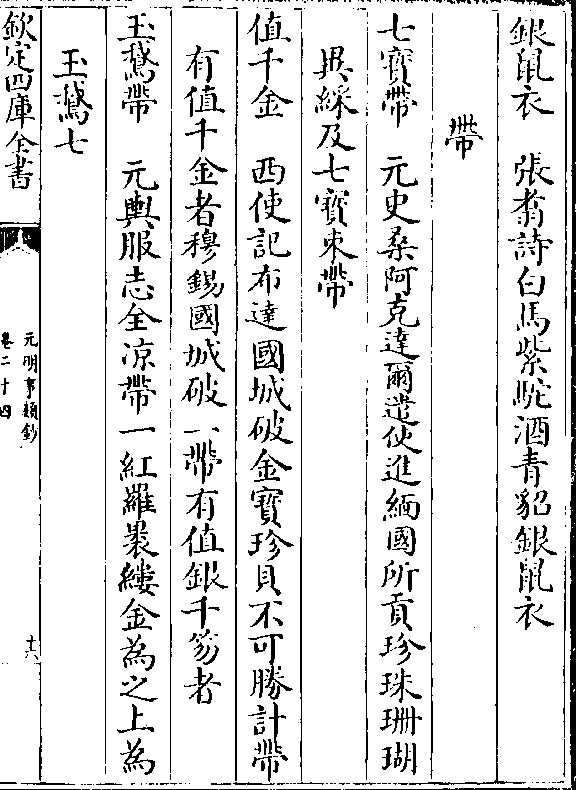 銀鼠衣　張翥詩白馬紫駝酒青貂銀鼠衣
帶
七寳帶　元史桑阿克達爾遣使進緬國所貢珍珠珊瑚
異綵及七寳束帶
值千金　西使記布達國城破金寳珍貝不可勝計帶
有值千金者穆錫國城破一帶有值銀千笏者
玉鵞帶　元輿服志全凉帶一紅羅褁縷金為之上為
玉鵞七
欽定四庫全書
元明事類鈔
卷二十四
十六